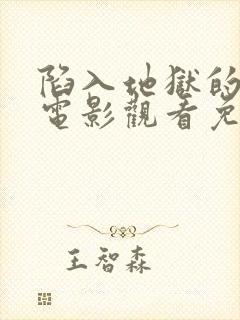 陷入地獄的
電影觀看免
王智森